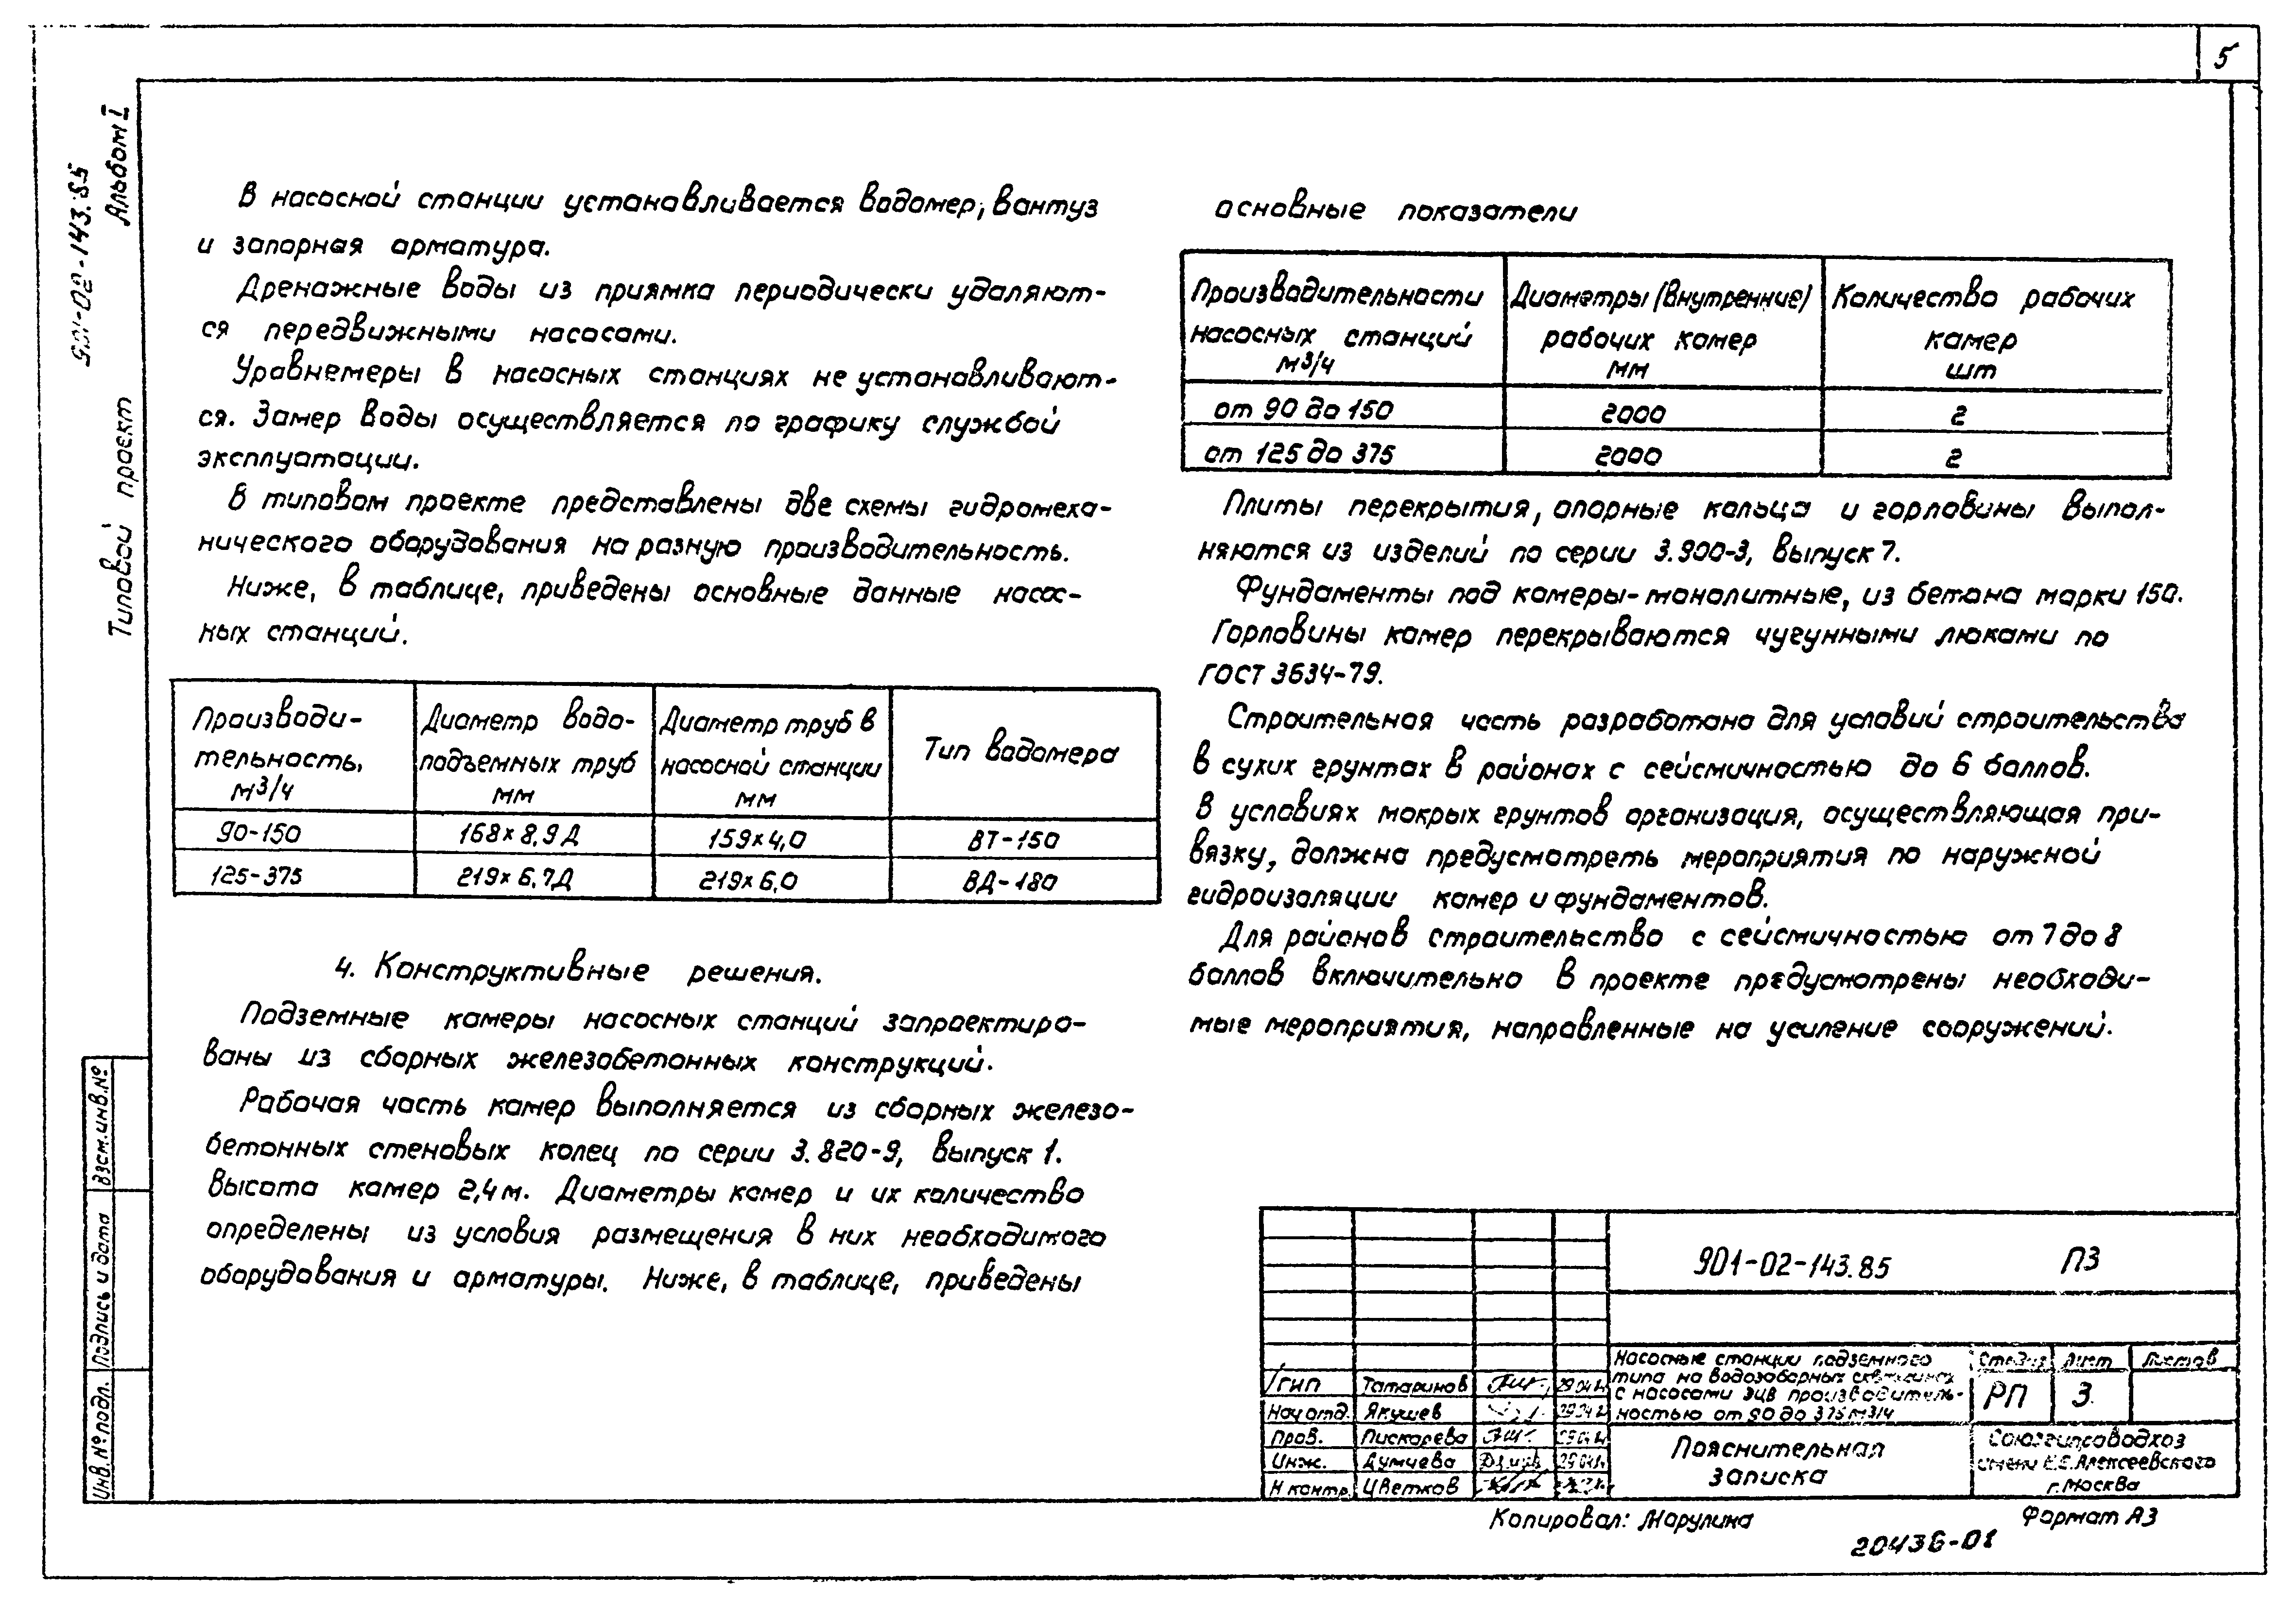 5
Альбом I
901-02-143.85
Типовой проект
В насосной станции устанавливается водомер, вантуз
и запорная арматура.
Дренажные воды из приямка периодически удаляют-
ся передвижными насосами.
Уравнемеры в насосных станциях не устанавливают-
ся. Замер воды осуществляется по графику службой
эксплуатации.
В типовом проекте представлены две схемы гидромеха-
нического оборудования на разную производительность.
Ниже, в таблице, приведены основные данные насос-
ных станций.
Производи-
тельность,
м3/ч
Диаметр водо-
подъемных труб
мм
Диаметр труб в
насосной станции
мм
Тип водомера
90-150 168×8,9Д 159×4,0 ВТ-150
125-375 219×6,7Д 219×6,0 ВД-180
4. Конструктивные решения.
Подземные камеры насосных станций запроектиро-
ваны из сборных железобетонных конструкций.
Рабочая часть камер выполняется из сборных железо-
бетонных стеновых колец по серии 3.820-9, выпуск 1.
Высота камер 2,4м. Диаметры камер и их количество
определены из условия размещения в них необходимого
оборудования и арматуры. Ниже, в таблице, приведены
основные показатели
Производительности
насосных станций
м3/ч
Диаметры (внутренние)
рабочих камер
мм
Количество рабочих
камер
шт
от 90 до 150 2000 2
от 125 до 375 2000 2
Плиты перекрытия, опорные кольца и горловины выпол-
няются из изделий по серии 3.900-3, выпуск 7.
Фундаменты под камеры-монолитные, из бетона марки 150.
Горловины камер перекрываются чугунными люками по
ГОСТ 3634-79.
Строительная часть разработана для условий строительства
в сухих грунтах в районах с сейсмичностью до 6 баллов.
В условиях мокрых грунтов организация, осуществляющая при-
вязку, должна предусмотреть мероприятия по наружной
гидроизоляции камер и фундаментов.
Для районов строительство с сейсмичностью от 7 до 8
баллов включительно в проекте предусмотрены необходи-
мые мероприятия, направленные на усиление сооружений.
Взам.инв.№
Подпись и дата
Инв.№ подл.
901-02-143.85 ПЗ
Насосные станции подземного
типа на водозаборных скважинах
с насосами ЭЦВ производитель-
ностью от 90 до 375 м3/ч
Стадия Лист Листов
РП 3
Пояснительная
записка
Союзгипроводхоз
имени Е.Е.Алексеевского
г.Москва
ГИП Татаринов
Нач отд. Якушев
Пров. Пискарева
Инж. Думчева
Н контр. Цветков
Копировал: Марулина
Формат А3
20436-01